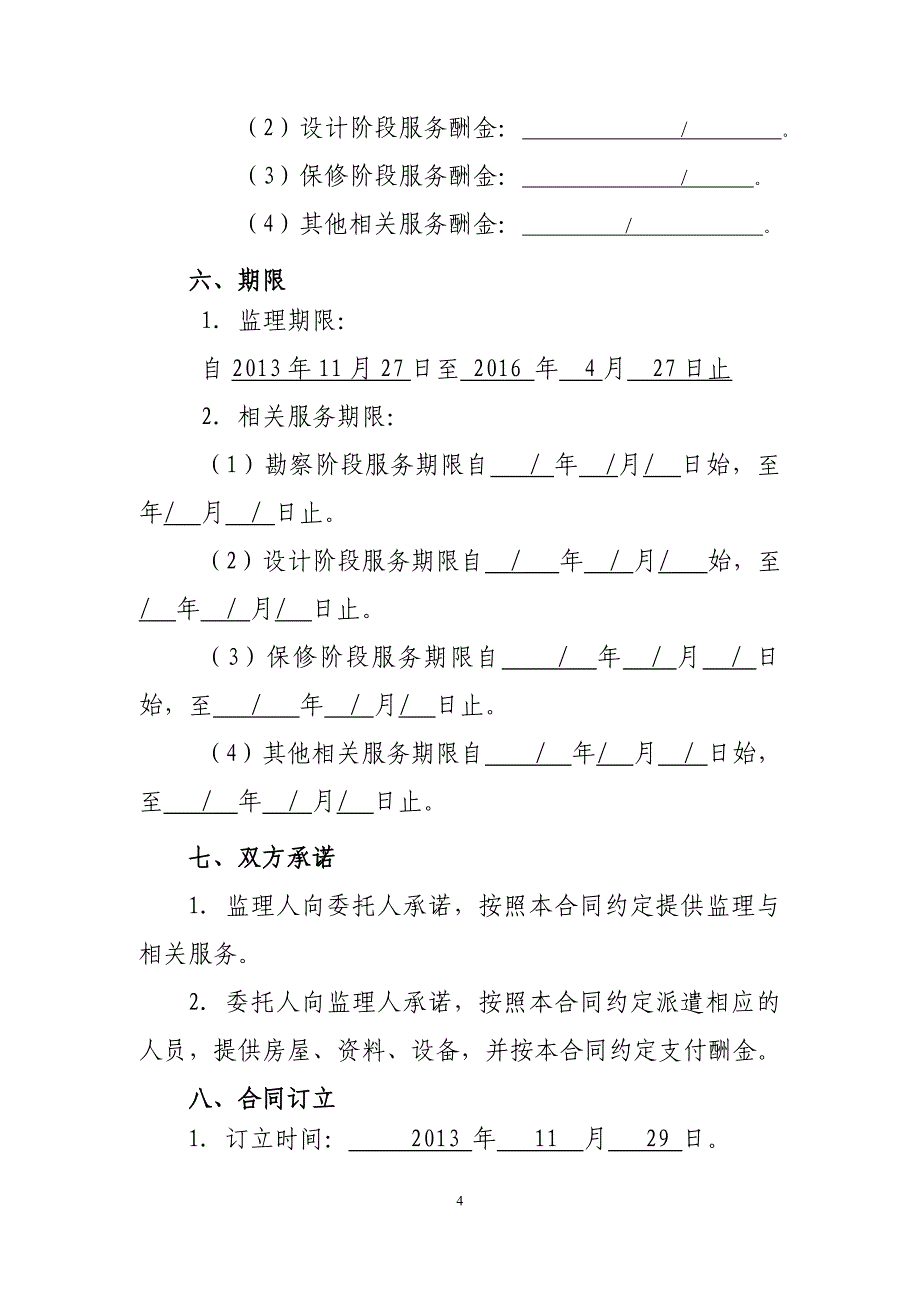 （2）设计阶段服务酬金： / 。
（3）保修阶段服务酬金： / 。
（4）其他相关服务酬金： / 。
六、期限
1. 监理期限：
自 2013 年 11 月 27 日至 2016 年 4 月 27 日止
2. 相关服务期限：
（1）勘察阶段服务期限自 / 年 / 月/ 日始，至
年/ 月 / 日止。
（2）设计阶段服务期限自 / 年 / 月/ 始，至
/ 年 / 月/ 日止。
（3）保修阶段服务期限自 / 年 / 月 / 日
始，至 / 年 / 月/ 日止。
（4）其他相关服务期限自 / 年/ 月 / 日始，
至 / 年 / 月/ 日止。
七、双方承诺
1. 监理人向委托人承诺，按照本合同约定提供监理与
相关服务。
2. 委托人向监理人承诺，按照本合同约定派遣相应的
人员，提供房屋、资料、设备，并按本合同约定支付酬金。
八、合同订立
1. 订立时间： 2013 年 11 月 29 日。
4